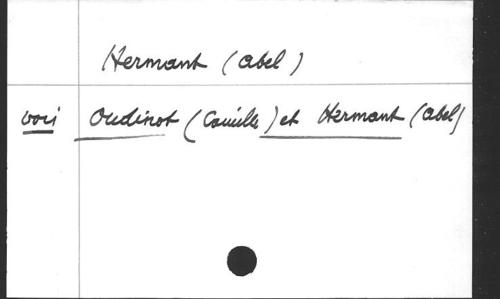 Hermant (Abel)
voir Oudinot (Camille) et Hermant (Abel)